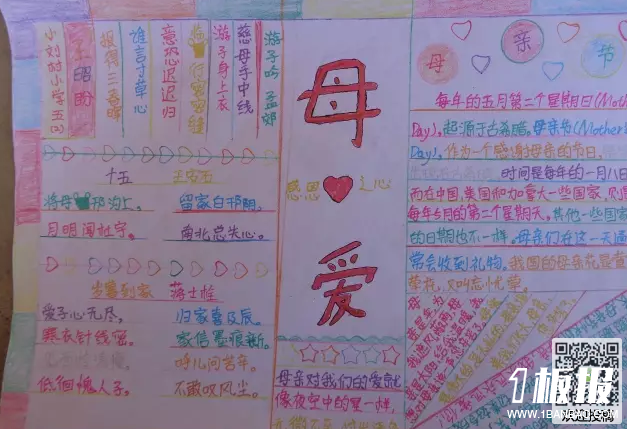 游子吟 孟郊
慈母手中线
游子身上衣
临行密密缝
意恐迟迟归
谁言寸草心
报得三春晖
小刘村小学五(2)
十五 王安石
将母邗沟上。
留家白邗阴。
月明闻杜宇。
南北总关心。
岁暮到家 蒋士铨
爱子心无尽。
归家喜及辰。
寒衣针线密。
家信墨痕新。
呼儿问苦辛。
低徊愧人子。
不敢叹风尘。
母
爱
感恩
之心
母亲对我们的爱就
像夜空中的星一样,
母亲节
每年的五月第二个星期日(Moth
Day),起源于古希腊。母亲节(Mother
Day),作为一个感谢母亲的节日,
时间是每年的一月八日
而在中国,美国和加拿大一些国家,则是
每年5月的第二个星期天,其他一些国家
的日期也不一样。母亲们在这一天通
常会收到礼物。我国的母亲花是萱
草花,又叫忘忧草。
1板报
WWW.1BANBAO.COM
欢迎投稿